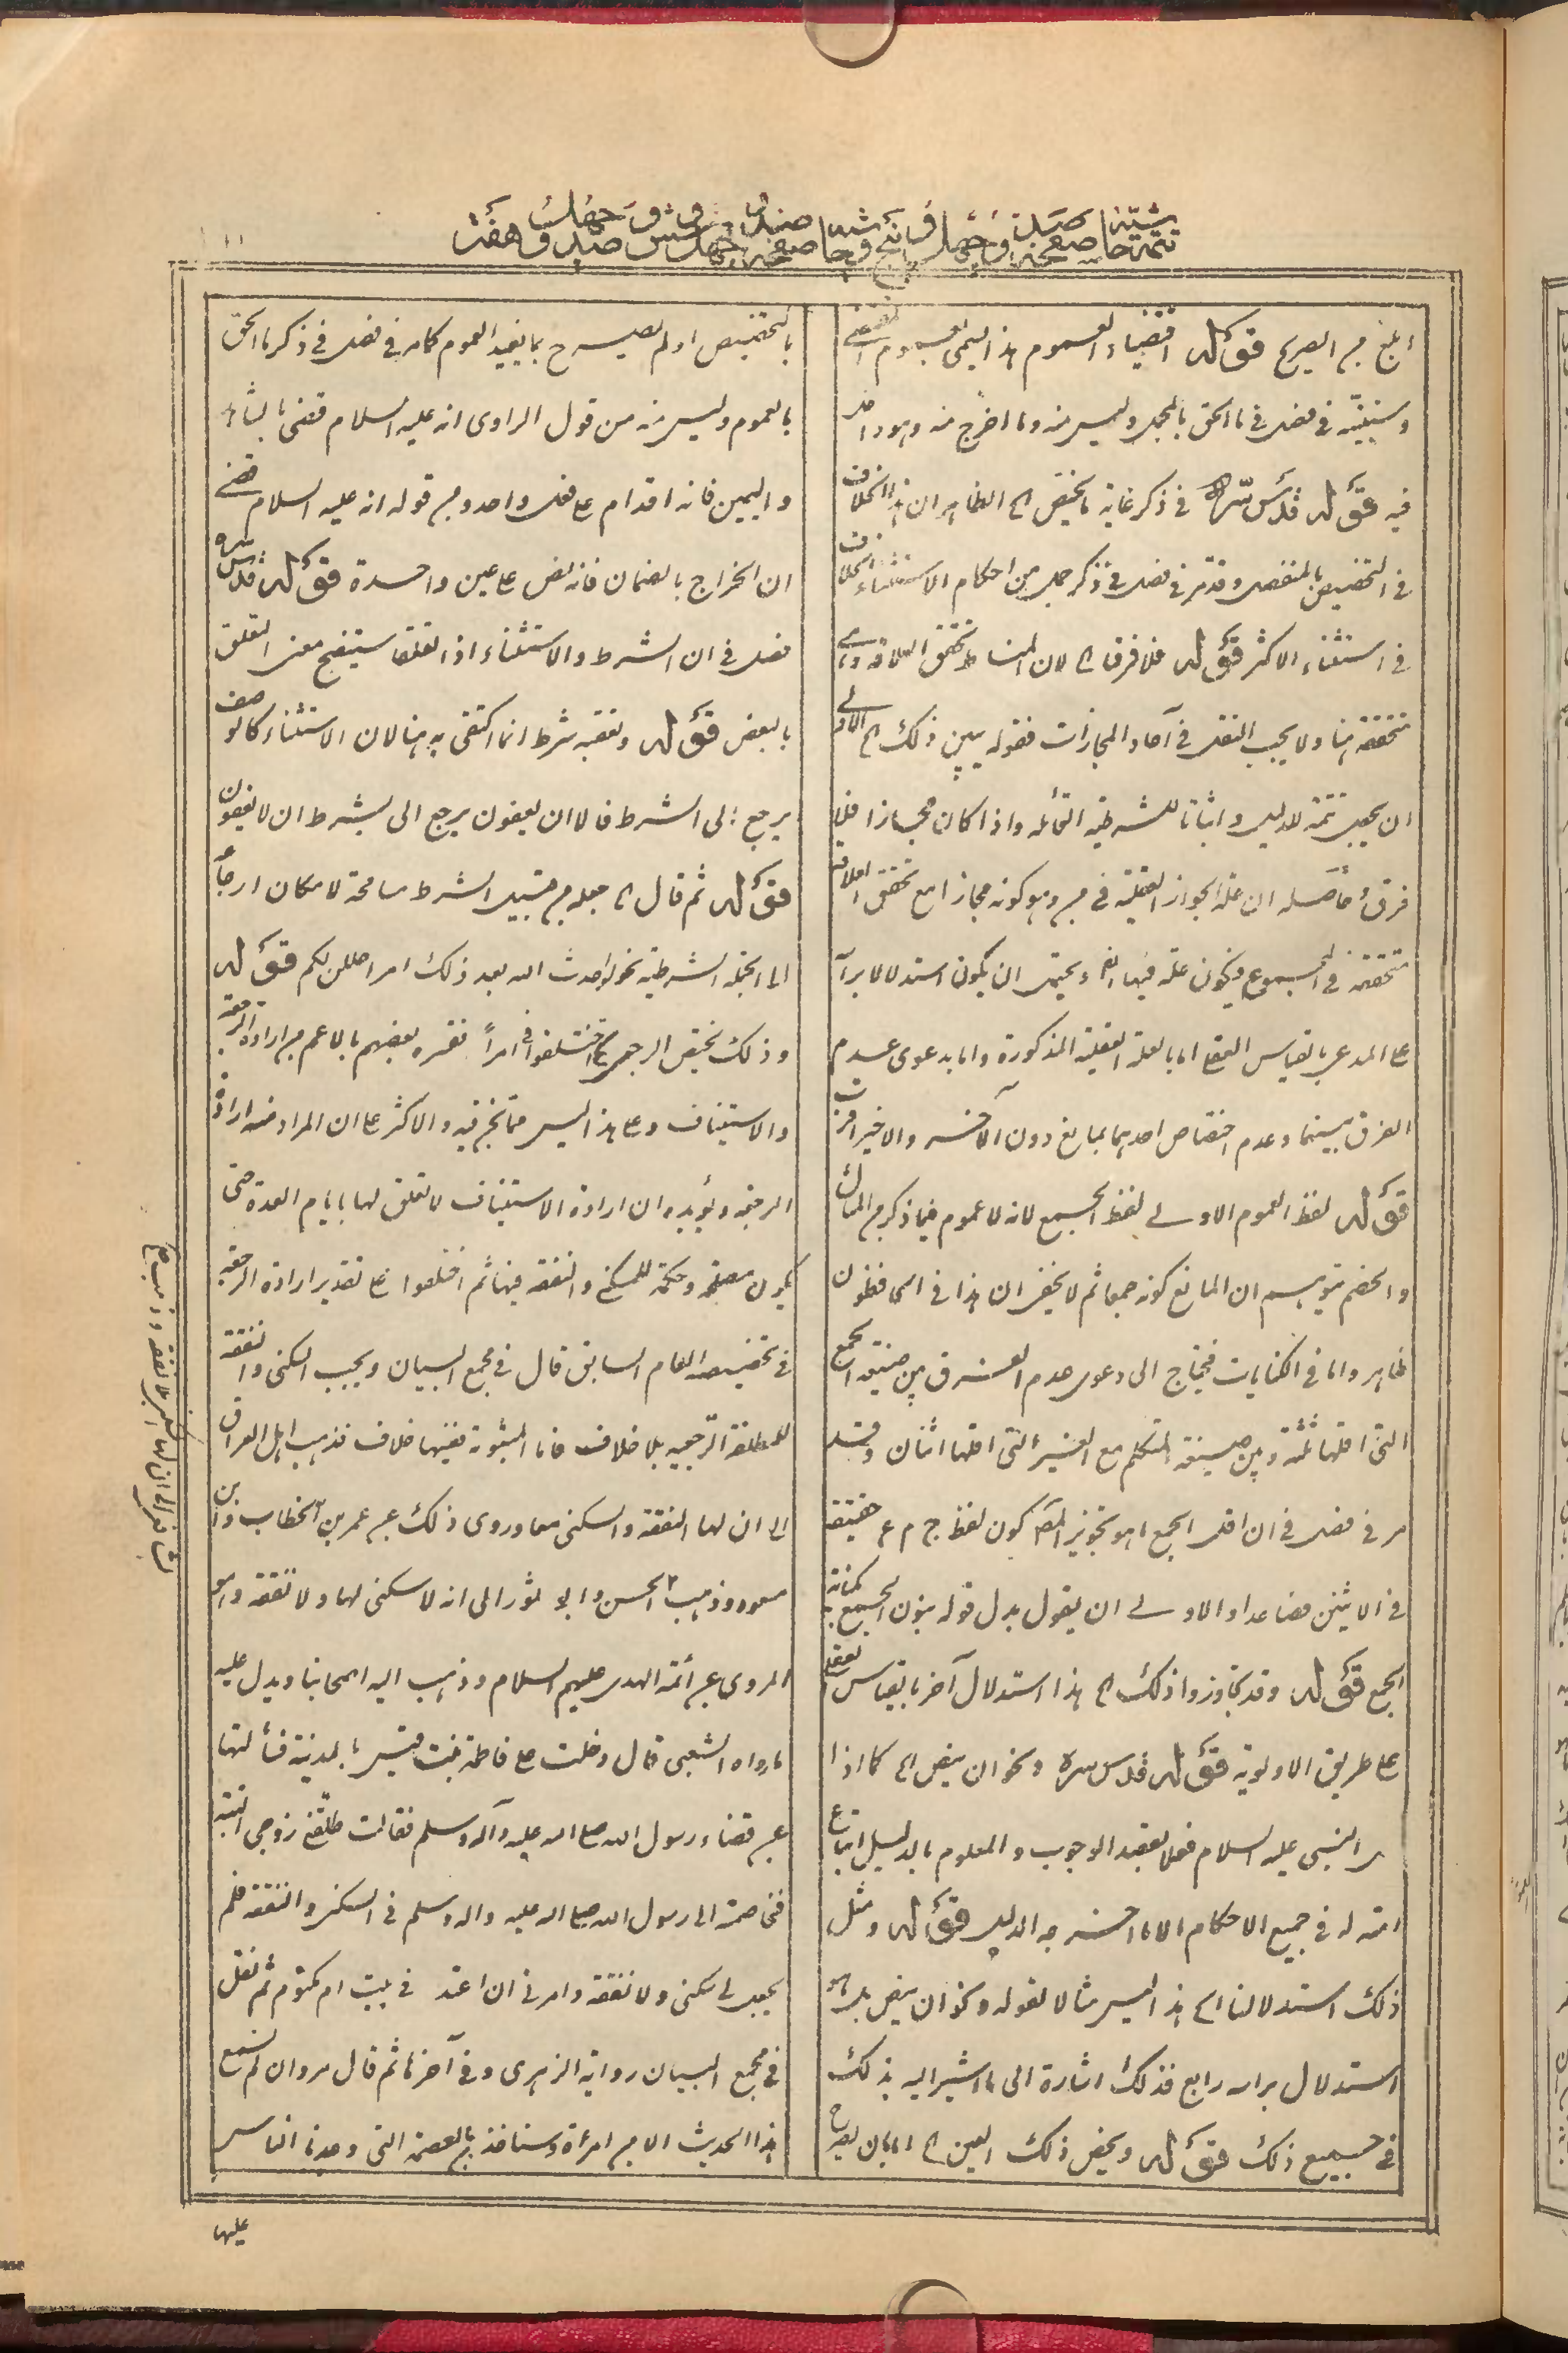 تتمة حاشية صفحة صد و چهل و پنج و حاشية صفحة صد و چهل و شش و صد و چهل و هفت
ابلغ من الصريح قوله اقتضاء العموم هذا يسمى بعموم المقتضى
وسنبينه في فصل في ما الحق بالمجمل وليس منه وما اخرج منه وهو داخل
فيه قوله قدس سره في ذكر غاية ما يخص الخ الظاهر ان هذا الخلاف
في التخصيص بالمنفصل وقد مر في فصل في ذكر جمل من احكام الاستثناء الخلاف
في استثناء الاكثر قوله فلا فرق الخ لان المناط تحقق العلاقة وهي
متحققة هنا ولا يجب النقل في آحاد المجازات فقوله يبين ذلك الخ الاولى
ان يجعل تتمة للدليل واثباتا للشرطية القائلة واذا كان مجازا فلا
فرق وحاصله ان علة الجواز العقلية في وهو كونه مجازا مع تحقق العلاقة
متحققة في المجموع فيكون علة فيها ايضا ويحتمل ان يكون استدلالا برأسه
على المدعى بالقياس العقلي اما بالعلة العقلية المذكورة واما بدعوى عدم
الفرق بينهما وعدم اختصاص احدهما بمانع دون الآخر والاخير اقرب
قوله لفظ العموم الاولى لفظ الجمع لانه لا عموم فيما ذكر من المثال
والخصم يتوهم ان المانع كونه جمعا ثم لا يخفى ان هذا في انا له لحافظون
ظاهر واما في الكنايات فيحتاج الى دعوى عدم الفرق بين صيغة الجمع
التي اقلها ثلثة وبين صيغة المتكلم مع الغير التي اقلها اثنان وقد
مر في فصل في ان اقل الجمع ما هو تجويز المص كون لفظ ج م ع حقيقة
في الاثنين فصاعدا والاولى ان يقول بدل قوله بنون الجمع بكناية
الجمع قوله وقد تجاوزوا ذلك الخ هذا استدلال آخر بالقياس العقلي
على طريق الاولوية قوله قدس سره ونحو ان ينص الخ كما اذا
النبي عليه السلام فعلا بقصد الوجوب والمعلوم بالدليل اتباع
امته له في جميع الاحكام الا ما اخرجه الدليل قوله ومثل
ذلك استدلالنا الخ هذا ليس مثالا لقوله ونحو ان ينص بل هو
استدلال براسه رابع فذلك اشارة الى ما اشير اليه بذلك
في جميع ذلك قوله ويخص ذلك العين الخ اما بان يصرح
بالتخصيص او لم يصرح بما يفيد العموم كما مر في فصل في ذكر ما الحق
بالعموم وليس منه من قول الراوى انه عليه السلام قضى بالشاهد
واليمين فانه اقدام على فعل واحد ومن قوله انه عليه السلام قضى
ان الخراج بالضمان فانه نص على عين واحدة قوله قدس سره
فصل في ان الشرط والاستثناء اذا تعلقا سيتضح معنى التعلق
بالبعض قوله وتعقبه شرط انما اكتفى به هنا لان الاستثناء كالوصف
يرجع الى الشرط فالا ان يعفون يرجع الى بشرط ان لا يعفون
قوله ثم قال الخ جعله من قبيل الشرط مسامحة لامكان ارجاعه
الى الجملة الشرطية نحو لو احدث الله بعد ذلك امرا حللن لكم قوله
وذلك يخص الرجعى الخ اختلفوا في امراً ففسره بعضهم بالاعم من ارادة الرجعة
والاستيناف وعلى هذا ليس مما نحن فيه والاكثر على ان المراد منه ارادة
الرجعة ويؤيده ان ارادة الاستيناف لا تعلق لها بايام العدة حتى
يكون مصلحة وحكمة للسكنى والنفقة فيها ثم اختلفوا على تقدير ارادة الرجعة
في تخصيصه العام السابق قال في مجمع البيان ويجب السكنى والنفقة
للمطلقة الرجعية بلا خلاف فاما المبتوتة ففيها خلاف فذهب اهل العراق
الى ان لها النفقة والسكنى معا وروى ذلك عن عمر بن الخطاب وابن
مسعود وذهب الحسن وابو ثور الى انه لا سكنى لها ولا نفقة وهو
المروى عن أئمة الهدى عليهم السلام وذهب اليه اصحابنا ويدل عليه
ما رواه الشعبى قال دخلت على فاطمة بنت قيس بالمدينة فسألتها
عن قضاء رسول الله صلى الله عليه وآله وسلم فقالت طلقنى زوجى البتة
فخاصمته الى رسول الله صلى الله عليه واله وسلم في السكنى والنفقة فلم
يجعل لى سكنى ولا نفقة وامرنى ان اعتد في بيت ام مكتوم ثم نقل
في مجمع البيان رواية الزهرى وفي آخرها ثم قال مروان لم نسمع
هذا الحديث الا من امرأة وسناخذ بالعصمة التى وجدنا الناس
عليها